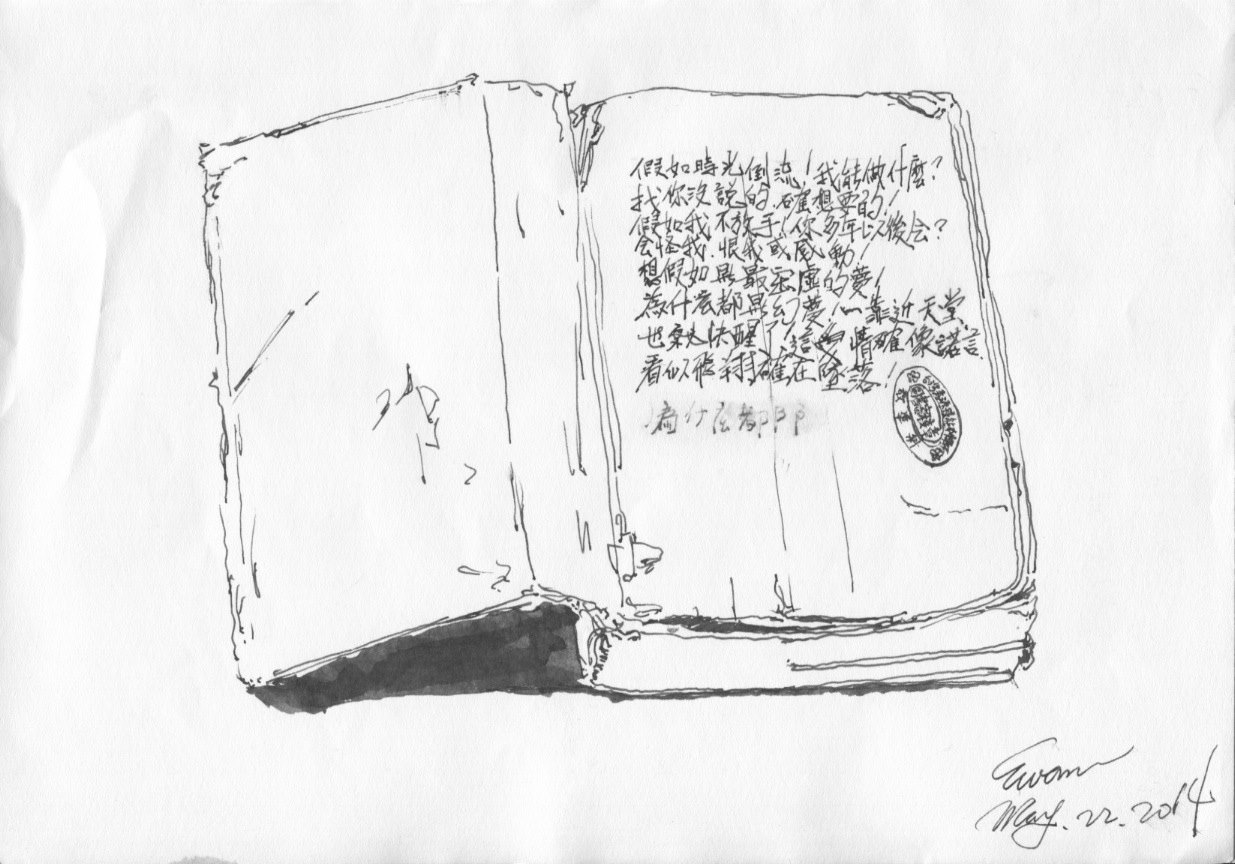 假如時光倒流!我能做什麼?
找你沒說的.確想要的!
假如我不放手!你多年以後会?
会怪我.恨我或感動!
想假如是最空虛的夢!
為什麼都是幻夢!一靠近天堂.
也就快醒了!這 情確像諾言
看似飛翔確在墜落!
為什么都
Ewan
May. 22. 2014